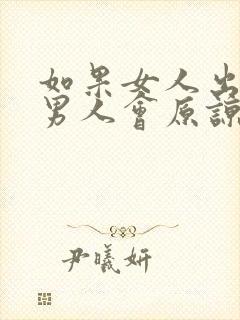 如果女人出
男人會原諒
尹曦妍